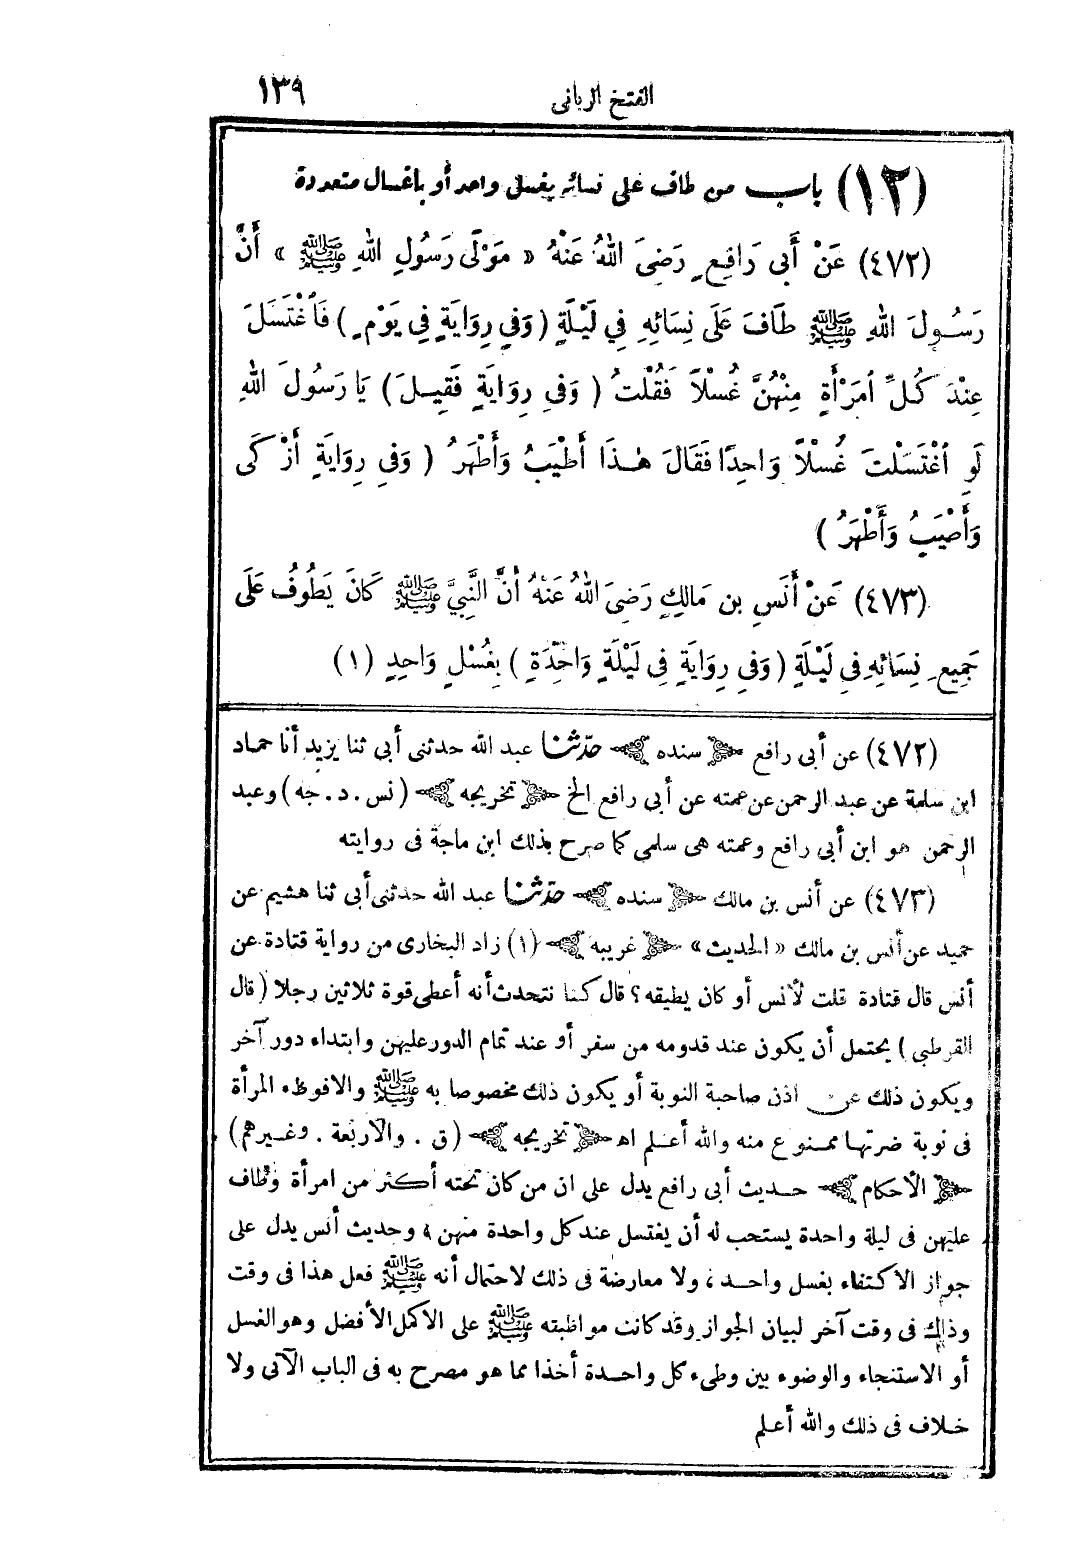 الفتح الربانى ١٣٩
(١٢) باب من طاف على نسائه بغسل واحد أو باغسال متعددة
(٤٧٢) عَنْ أَبِى رَافِعٍ رَضِىَ اللهُ عَنْهُ « مَوْلَى رَسُولِ اللهِ ﷺ » أَنَّ
رَسُولَ اللهِ ﷺ طَافَ عَلَى نِسَائِهِ فِي لَيْلَةٍ (وَفِي رِوَايَةٍ فِي يَوْمٍ) فَاغْتَسَلَ
عِنْدَ كُلِّ امْرَأَةٍ مِنْهُنَّ غُسْلاً فَقُلْتُ ( وَفِى رِوَايَةٍ فَقِيلَ) يَا رَسُولَ اللهِ
لَوِ اغْتَسَلْتَ غُسْلاً وَاحِدًا فَقَالَ هٰذَا أَطْيَبُ وَأَطْهَرُ ( وَفِى رِوَايَةٍ أَزْكَى
وَأَطْيَبُ وَأَطْهَرُ )
(٤٧٣) عَنْ أَنَسِ بن مَالِكٍ رَضِىَ اللهُ عَنْهُ أَنَّ النَّبِيَّ ﷺ كَانَ يَطُوفُ عَلَى
جَمِيعِ نِسَائِهِ فِي لَيْلَةٍ (وَفِي رِوَايَةٍ فِي لَيْلَةٍ وَاحِدَةٍ ) بِغُسْلٍ وَاحِدٍ (١)
(٤٧٢) عن أبى رافع ﴿ سنده ﴾ حدّثنا عبد الله حدثنى أبى ثنا يزيد أنا حماد
ابن سلمة عن عبد الرحمن عن عمته عن أبى رافع الخ ﴿ تخريجه ﴾ (نس . د . جه) وعبد
الرحمن هو ابن أبى رافع وعمته هى سلمى كما صرح بذلك ابن ماجة فى روايته
(٤٧٣) عن أنس بن مالك ﴿ سنده ﴾ حدّثنا عبد الله حدثنى أبى ثنا هشيم عن
حميد عن أنس بن مالك « الحديث » ﴿ غريبه ﴾ (١) زاد البخارى من رواية قتادة عن
أنس قال قتادة قلت لأنس أو كان يطيقه ؟ قال كنا نتحدث أنه أعطى قوة ثلاثين رجلا (قال
القرطبى ) يحتمل أن يكون عند قدومه من سفر أو عند تمام الدور عليهن وابتداء دور آخر
ويكون ذلك عن اذن صاحبة النوبة أو يكون ذلك مخصوصا به ﷺ والا فوطء المرأة
فى نوبة ضرتها ممنوع منه والله أعلم اه ﴿ تخريجه ﴾ (ق . والاربعة . وغيرهم)
﴿ الأحكام ﴾ حديث أبى رافع يدل على ان من كان تحته أكثر من امرأة وطاف
عليهن فى ليلة واحدة يستحب له أن يغتسل عند كل واحدة منهن ، وحديث أنس يدل على
جواز الاكتفاء بغسل واحد ، ولا معارضة فى ذلك لاحتمال أنه ﷺ فعل هذا فى وقت
وذلك فى وقت آخر لبيان الجواز وقد كانت مواظبته ﷺ على الاكمل الأفضل وهو الغسل
أو الاستنجاء والوضوء بين وطىء كل واحدة أخذا مما هو مصرح به فى الباب الآتى ولا
خلاف فى ذلك والله أعلم